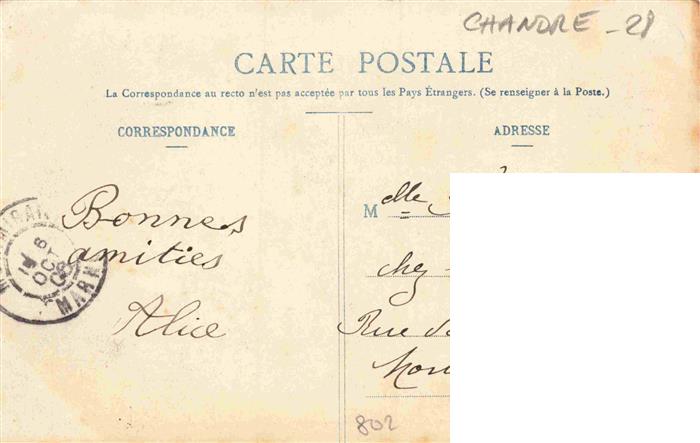 CHANDRE - 28
CARTE POSTALE
La Correspondance au recto n'est pas acceptée par tous les Pays Étrangers. (Se renseigner à la Poste.)
CORRESPONDANCE
ADRESSE
Bonnes
amitiés
Alice
Melle
chez
Rue
6
OCT
MARN
802